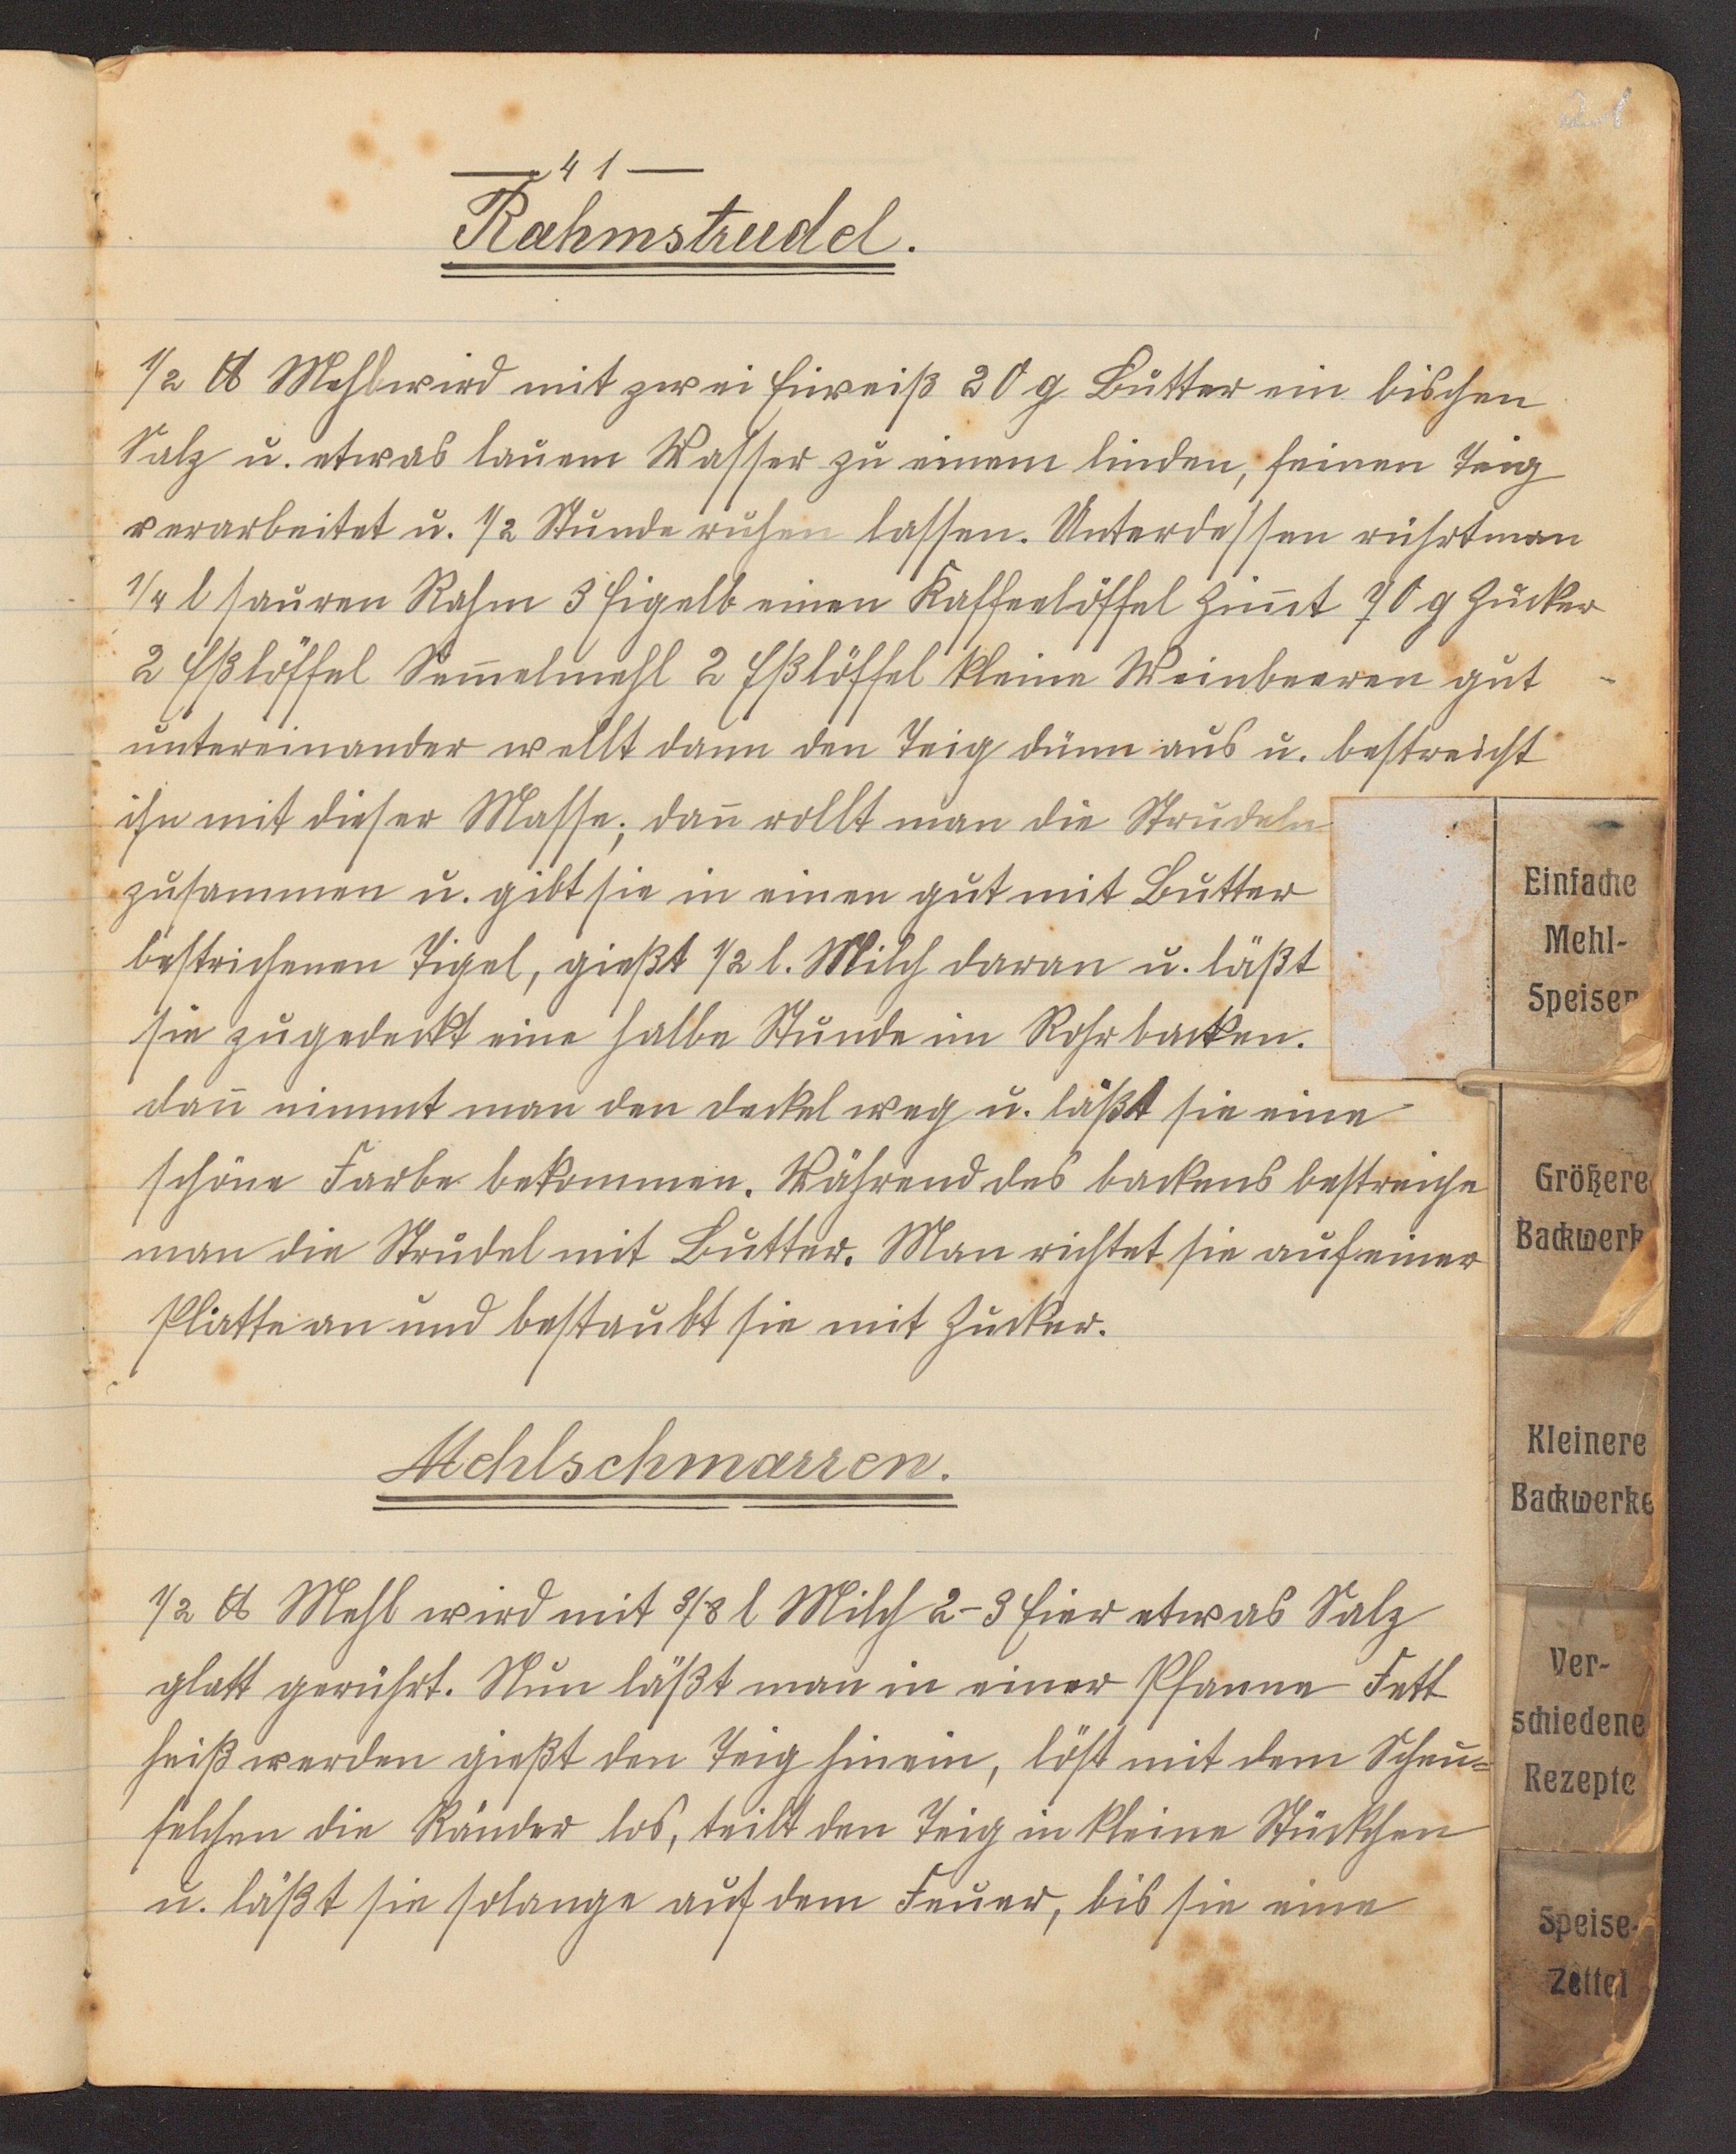 21
— 41 —
Rahmstrudel.
1/2 ℔ Mehl wird mit zwei Eiweiß 20 g Butter ein bischen
Salz u. etwas lauem Wasser zu einem linden, feinen Teig
verarbeitet u. 1/2 Stunde ruhen lassen. Unterdessen rührt man
1/4 l sauren Rahm 3 Eigelb einen Kaffeelöffel Zim̅t 70 g Zucker
2 Eßlöffel Sem̅elmehl 2 Eßlöffel kleine Weinbeeren gut
untereinander wellt dann den Teig dünn aus u. bestreicht
ihn mit dieser Masse; dan̅ rollt man die Strudeln
zusammen u. gibt sie in einen gut mit Butter
bestrichenen Tigel, gießt 1/2 l. Milch daran u. läßt
sie zugedeckt eine halbe Stunde im Rohr backen.
dan̅ nimmt man den deckel weg u. läßt sie eine
schöne Farbe bekommen. Während des backens bestreiche
man die Strudel mit Butter. Man richtet sie auf einer
Platte an und bestaubt sie mit Zucker.
Mehlschmarren.
1/2 ℔ Mehl wird mit 3/8 l Milch 2-3 Eier etwas Salz
glatt gerührt. Nun läßt man in einer Pfanne Fett
heiß werden gießt den Teig hinein, löst mit dem Scheu=
felchen die Ränder los, teilt den Teig in kleine Stückchen
u. läßt sie solange auf dem Feuer, bis sie eine
Einfache
Mehl-
Speisen
Größere
Backwerk
Kleinere
Backwerke
Ver-
schiedene
Rezepte
Speise-
Zettel